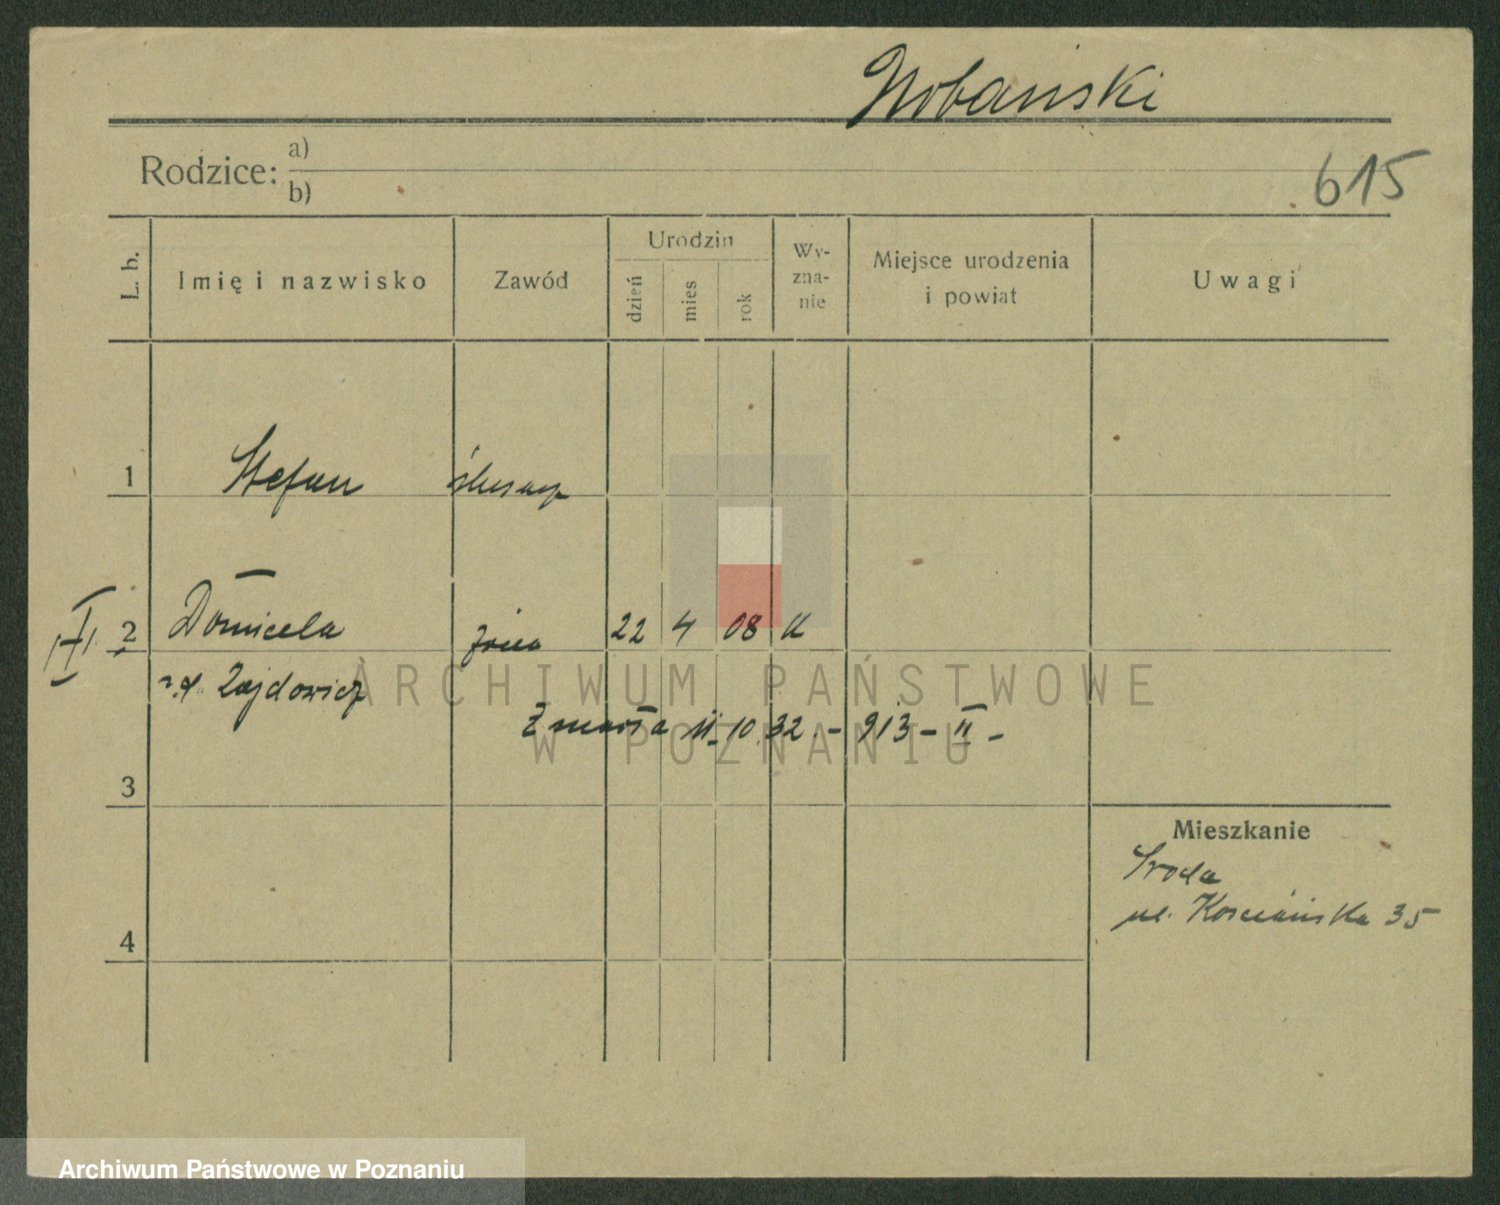 Nobański
615
Rodzice: a)
b)
L. b.
Imię i nazwisko
Zawód
Urodzin
dzień
mies
rok
Wy-
zna-
nie
Miejsce urodzenia
i powiat
Uwagi
1 Stefan ślusarz
II 2 Domicela żona 22 4 08 K
z d. Zajdowicz
ARCHIWUM PAŃSTWOWE
W POZNANIU
Zmarła 11. 10 32. - 913 - II -
3
Mieszkanie
Środa
ul. Kościańska 35
4
Archiwum Państwowe w Poznaniu